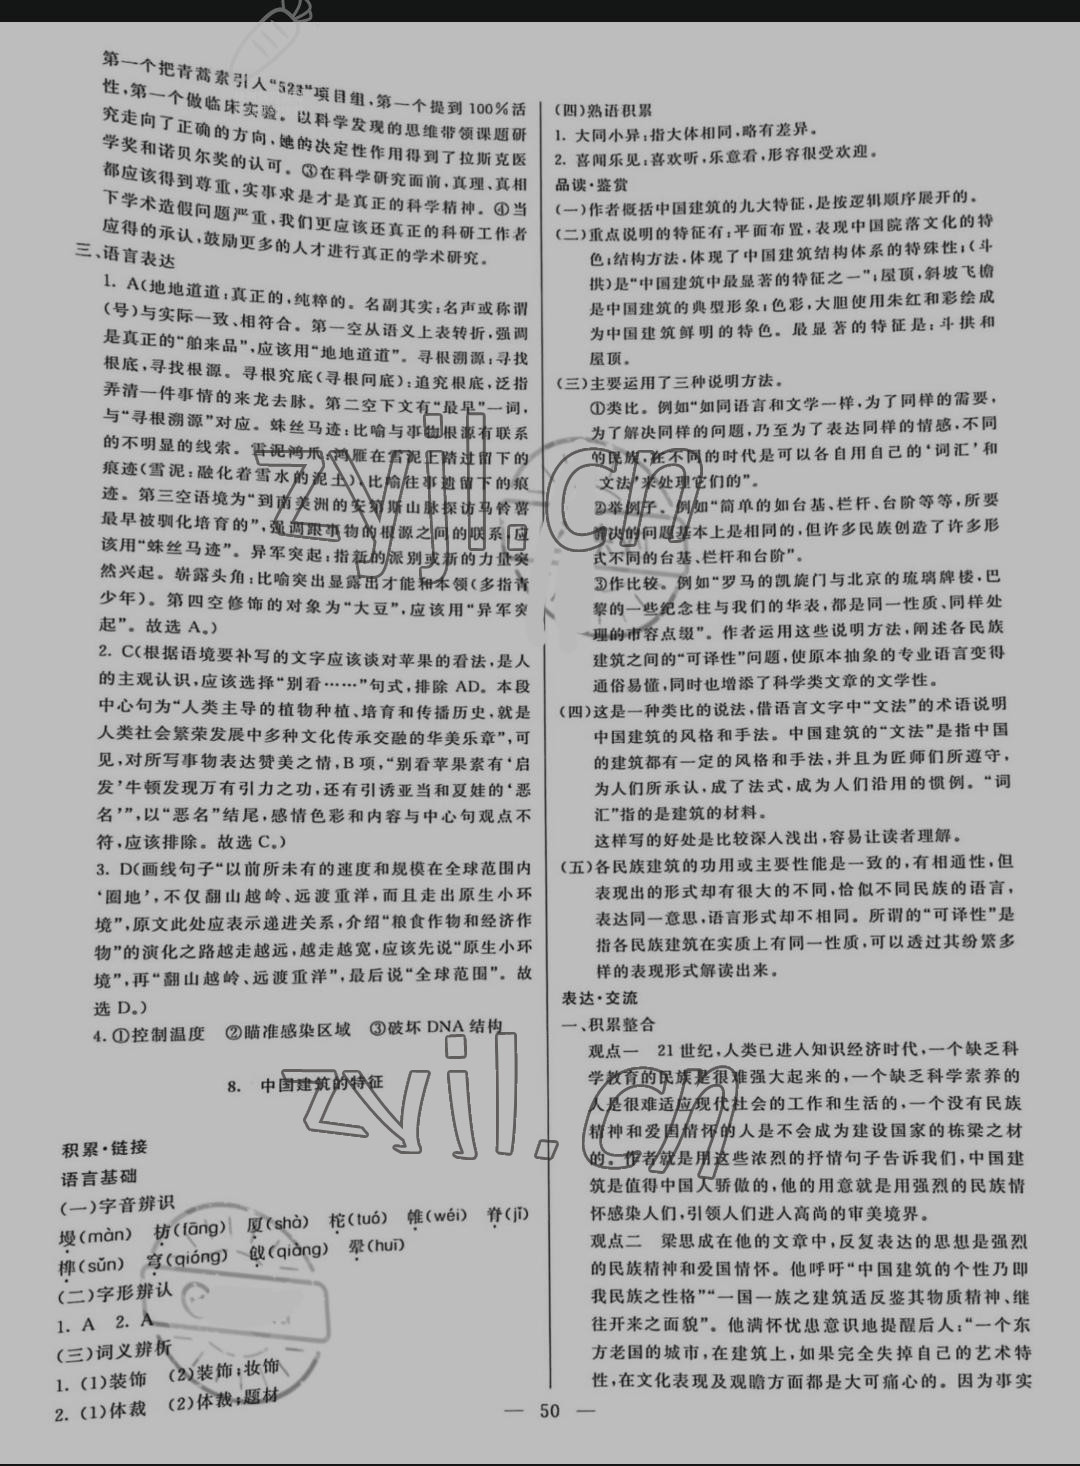 第一个把青蒿素引人“523”项目组,第一个提到 100%活
性,第一个做临床实验。以科学发现的思维带领课题研
究走向了正确的方向,她的决定性作用得到了拉斯克医
学奖和诺贝尔奖的认可。③在科学研究面前,真理、真相
都应该得到尊重,实事求是才是真正的科学精神。④当
下学术造假问题严重,我们更应该还真正的科研工作者
应得的承认,鼓励更多的人才进行真正的学术研究。
三、语言表达
1. A(地地道道:真正的,纯粹的。名副其实:名声或称谓
(号)与实际一致、相符合。第一空从语义上表转折,强调
是真正的“舶来品”,应该用“地地道道”。寻根溯源:寻找
根底,寻找根源。寻根究底(寻根问底):追究根底,泛指
弄清一件事情的来龙去脉。第二空下文有“最早”一词,
与“寻根溯源”对应。蛛丝马迹:比喻与事物根源有联系
的不明显的线索。雪泥鸿爪:鸿雁在雪泥上踏过留下的
痕迹(雪泥:融化着雪水的泥土),比喻往事遗留下的痕
迹。第三空语境为“到南美洲的安第斯山脉探访马铃薯
最早被驯化培育的”,强调跟事物的根源之间的联系,应
该用“蛛丝马迹”。异军突起:指新的派别或新的力量突
然兴起。崭露头角:比喻突出显露出才能和本领(多指青
少年)。第四空修饰的对象为“大豆”,应该用“异军突
起”。故选 A。)
2. C(根据语境要补写的文字应该谈对苹果的看法,是人
的主观认识,应该选择“别看……”句式,排除 AD。本段
中心句为“人类主导的植物种植、培育和传播历史,就是
人类社会繁荣发展中多种文化传承交融的华美乐章”,可
见,对所写事物表达赞美之情,B 项,“别看苹果素有‘启
发’牛顿发现万有引力之功,还有引诱亚当和夏娃的‘恶
名’”,以“恶名”结尾,感情色彩和内容与中心句观点不
符,应该排除。故选 C。)
3. D(画线句子“以前所未有的速度和规模在全球范围内
‘圈地’,不仅翻山越岭、远渡重洋,而且走出原生小环
境”,原文此处应表示递进关系,介绍“粮食作物和经济作
物”的演化之路越走越远,越走越宽,应该先说“原生小环
境”,再“翻山越岭、远渡重洋”,最后说“全球范围”。故
选 D。)
4. ①控制温度 ②瞄准感染区域 ③破坏 DNA 结构
8. 中国建筑的特征
积累·链接
语言基础
(一)字音辨识
墁(màn) 枋(fāng) 厦(shà) 柁(tuó) 帷(wéi) 脊(jǐ)
榫(sǔn) 穹(qióng) 戗(qiàng) 翚(huī)
(二)字形辨认
1. A 2. A
(三)词义辨析
1. (1)装饰 (2)装饰;妆饰
2. (1)体裁 (2)体裁;题材
(四)熟语积累
1. 大同小异:指大体相同,略有差异。
2. 喜闻乐见:喜欢听,乐意看,形容很受欢迎。
品读·鉴赏
(一)作者概括中国建筑的九大特征,是按逻辑顺序展开的。
(二)重点说明的特征有:平面布置,表现中国院落文化的特
色;结构方法,体现了中国建筑结构体系的特殊性;(斗
拱)是“中国建筑中最显著的特征之一”;屋顶,斜坡飞檐
是中国建筑的典型形象;色彩,大胆使用朱红和彩绘成
为中国建筑鲜明的特色。最显著的特征是:斗拱和
屋顶。
(三)主要运用了三种说明方法。
①类比。例如“如同语言和文学一样,为了同样的需要,
为了解决同样的问题,乃至为了表达同样的情感,不同
的民族,在不同的时代是可以各自用自己的‘词汇’和
‘文法’来处理它们的”。
②举例子。例如“简单的如台基、栏杆、台阶等等,所要
解决的问题基本上是相同的,但许多民族创造了许多形
式不同的台基、栏杆和台阶”。
③作比较。例如“罗马的凯旋门与北京的琉璃牌楼,巴
黎的一些纪念柱与我们的华表,都是同一性质、同样处
理的市容点缀”。作者运用这些说明方法,阐述各民族
建筑之间的“可译性”问题,使原本抽象的专业语言变得
通俗易懂,同时也增添了科学类文章的文学性。
(四)这是一种类比的说法,借语言文字中“文法”的术语说明
中国建筑的风格和手法。中国建筑的“文法”是指中国
的建筑都有一定的风格和手法,并且为匠师们所遵守,
为人们所承认,成了法式,成为人们沿用的惯例。“词
汇”指的是建筑的材料。
这样写的好处是比较深人浅出,容易让读者理解。
(五)各民族建筑的功用或主要性能是一致的,有相通性,但
表现出的形式却有很大的不同,恰似不同民族的语言,
表达同一意思,语言形式却不相同。所谓的“可译性”是
指各民族建筑在实质上有同一性质,可以透过其纷繁多
样的表现形式解读出来。
表达·交流
一、积累整合
观点一 21 世纪,人类已进人知识经济时代,一个缺乏科
学教育的民族是很难强大起来的,一个缺乏科学素养的
人是很难适应现代社会的工作和生活的,一个没有民族
精神和爱国情怀的人是不会成为建设国家的栋梁之材
的。作者就是用这些浓烈的抒情句子告诉我们,中国建
筑是值得中国人骄傲的,他的用意就是用强烈的民族情
怀感染人们,引领人们进人高尚的审美境界。
观点二 梁思成在他的文章中,反复表达的思想是强烈
的民族精神和爱国情怀。他呼吁“中国建筑的个性乃即
我民族之性格”“一国一族之建筑适反鉴其物质精神、继
往开来之面貌”。他满怀忧患意识地提醒后人:“一个东
方老国的城市,在建筑上,如果完全失掉自己的艺术特
性,在文化表现及观瞻方面都是大可痛心的。因为事实
— 50 —
zyjl.cn
zyjl.cn